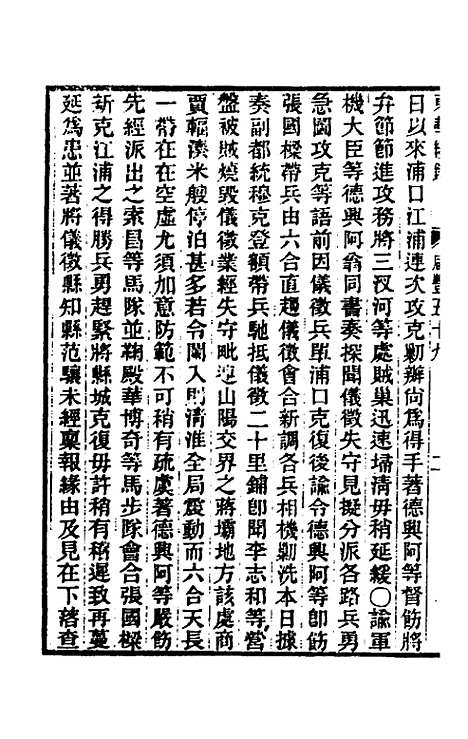 咸豐五十九
日以來浦口江浦連次攻克剿辦尙爲得手著德興阿等督飭將
弁節節進攻務將三汊河等處賊巢迅速埽清毋稍延緩〇諭軍
機大臣等德興阿翁同書奏探聞儀徵失守見擬分派各路兵勇
急圖攻克等語前因儀徵兵單浦口克復後諭令德興阿等卽飭
張國樑帶兵由六合直趨儀徵會合新調各兵相機剿洗本日據
奏副都統穆克登額帶兵馳抵儀徵二十里鋪卽聞李志和等營
盤被賊燒毀儀徵業經失守毗連山陽交界之蔣壩地方該處商
賈輻湊米艘停泊甚多若令闌入則清淮全局震動而六合天長
一帶在在空虛尤須加意防範不可稍有疏虞著德興阿等嚴飭
先經派出之索昌等馬隊並鞠殿華博奇等馬步隊會合張國樑
新克江浦之得勝兵勇趕緊將縣城克復毋許稍有稽遲致再蔓
延爲患並著將儀徵縣知縣范驤未經稟報緣由及見在下落查